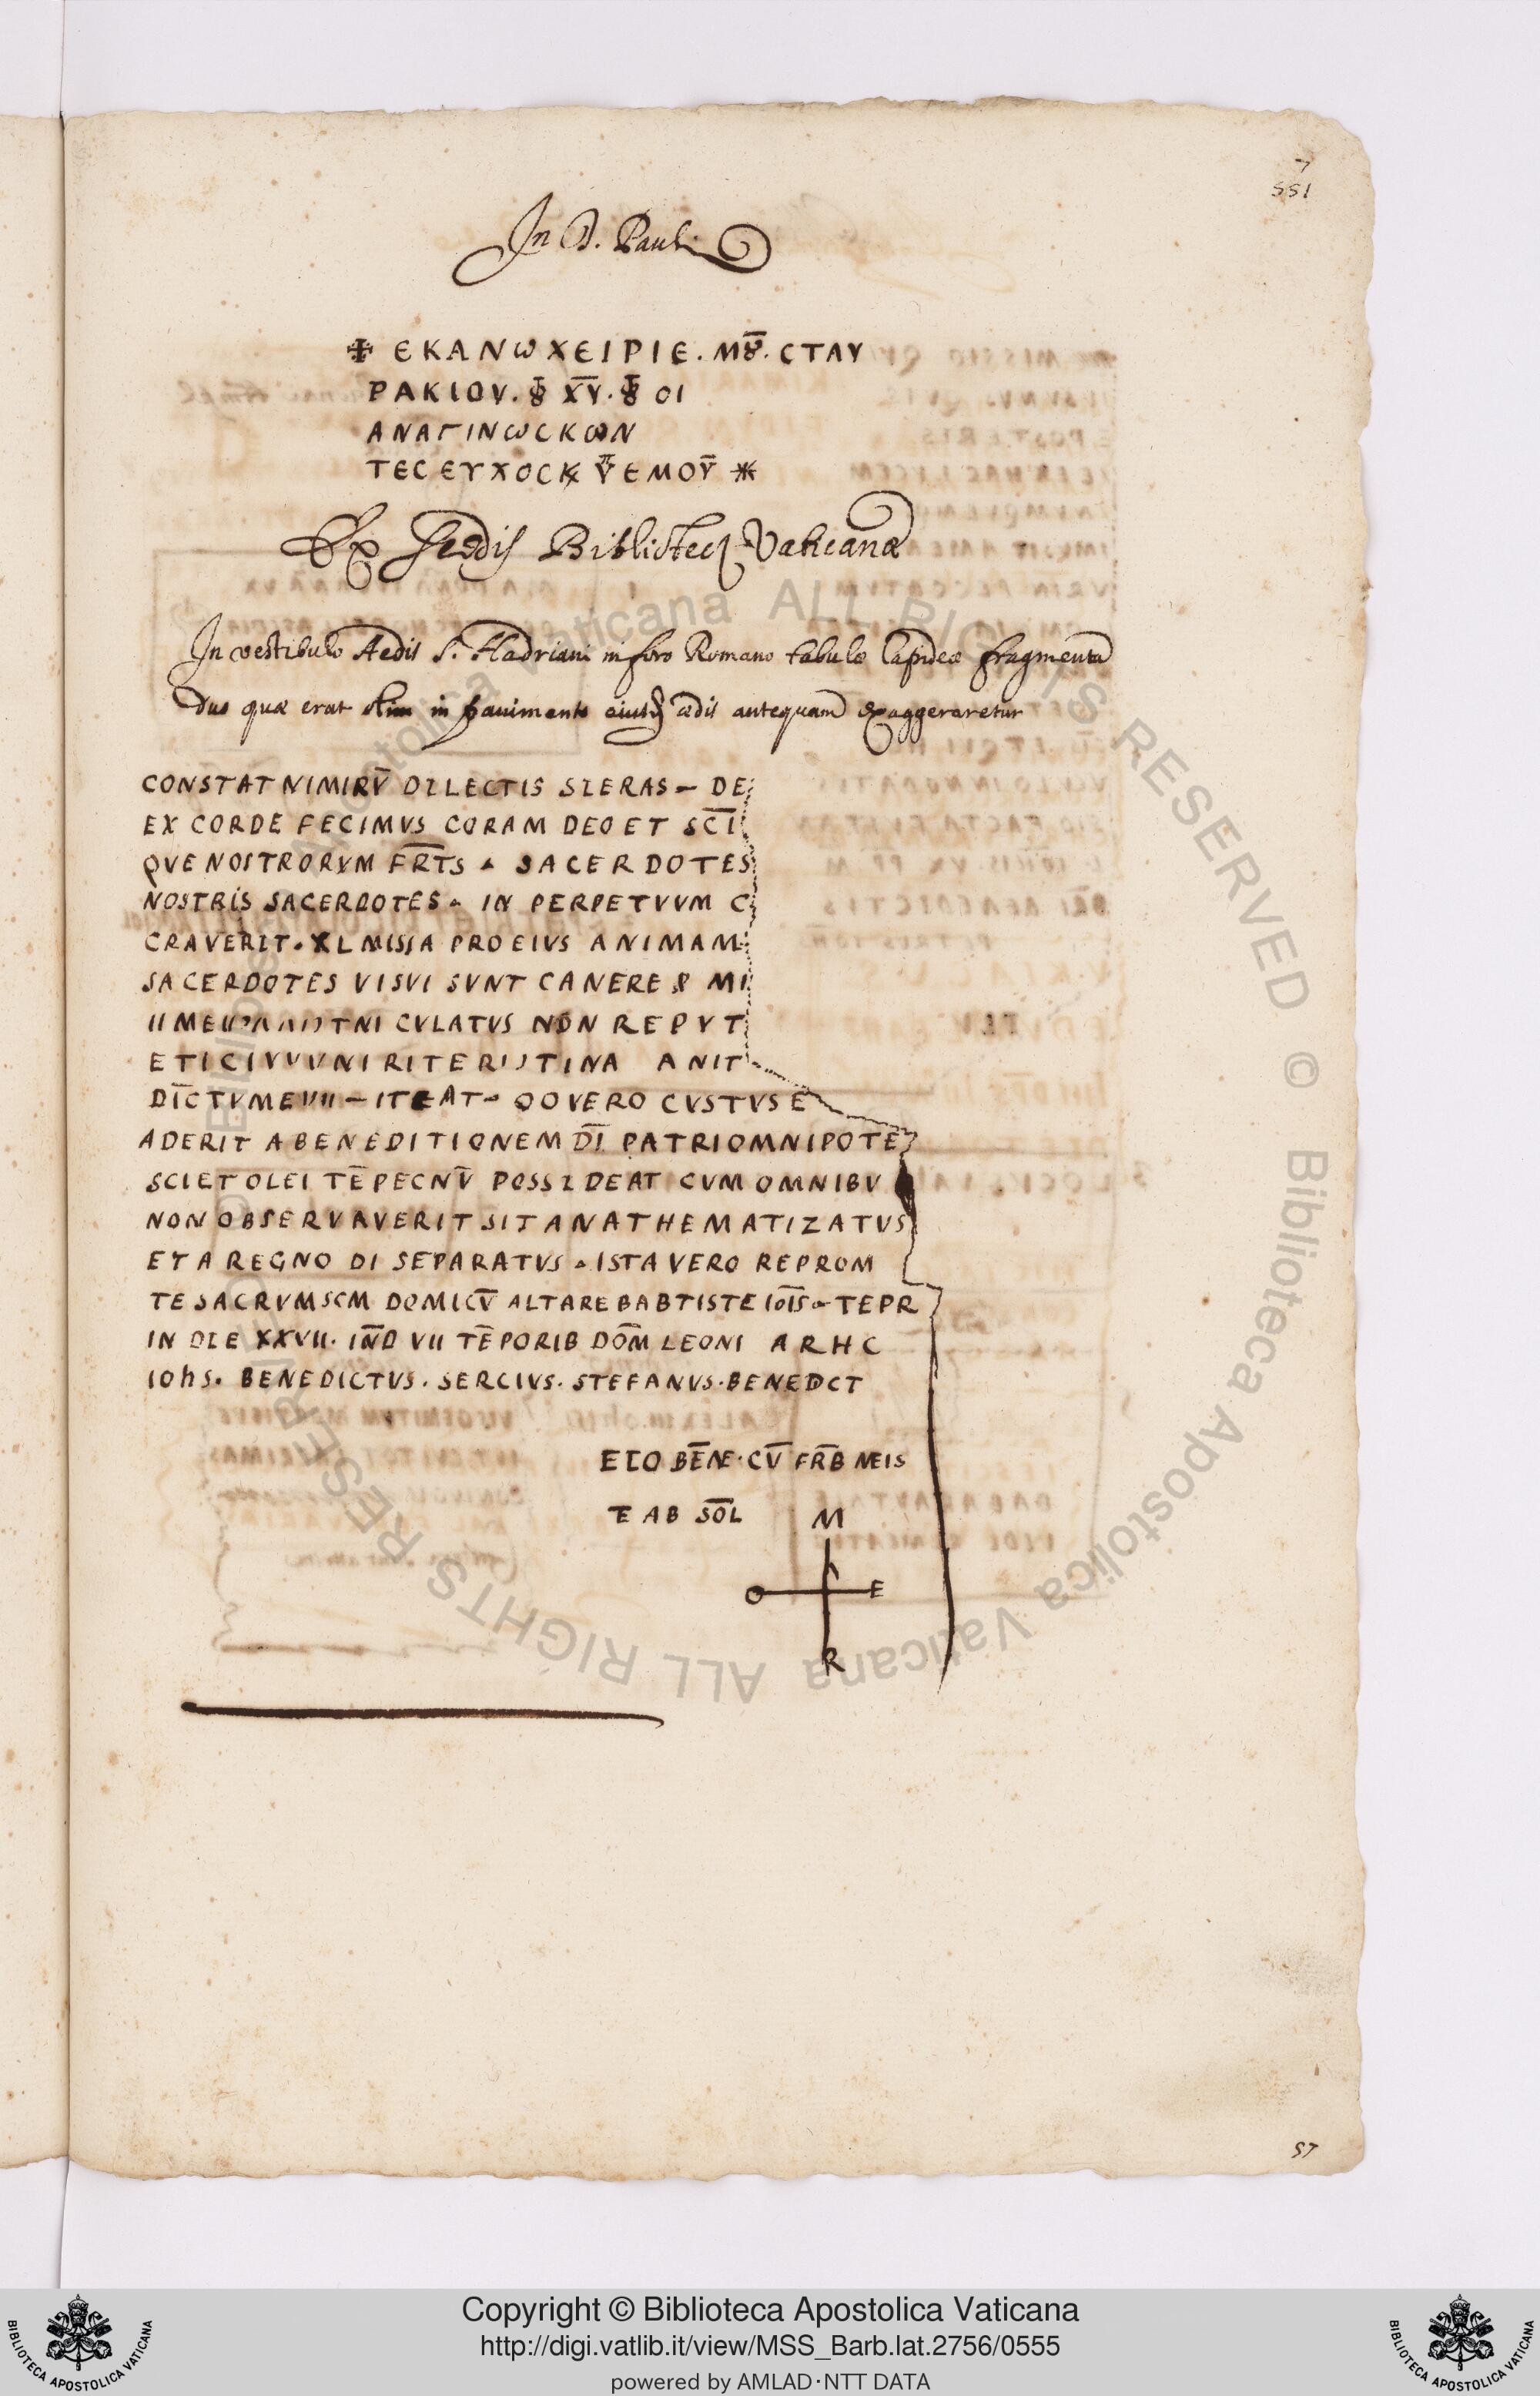 7
551
In D. Pauli
✠ ЄΚΑΝΩΧЄΙΡΙЄ. ΜȢ̅. СΤΑΥ
ΡΑΚΙΟΥ. Ȣ X̅V̅. Ȣ ΟΙ
ΑΝΑΓΙΝΩСΚΩΝ
ΤЄС ЄΥΧΟСΚ V̅ ЄΜΟΥ̅ ⁜
Ex Bibliotecę Vaticanæ
In vestibulo Aedis S. Hadriani in foro Romano tabulæ lapideæ fragmenta
duo quæ erat in pavimento eiusdẽ ædis antequam exaggeraretur
CONSTAT NIMIRV̅ DILECTIS SIERAS – DE
EX CORDE FECIMVS CORAM DEO ET SC̅I
QVE NOSTRORVM FR̅TS . SACERDOTES
NOSTRIS SACERDOTES . IN PERPETVVM C
CRAVERIT . XL MISSA PRO EIVS ANIMAM
SACERDOTES VISVI SVNT CANERE & MI
TNI CVLATVS NON REPVT
ETICIVVVNI RITE RISTINA ANIT
DI̅CTVMEVII – ITEAT – QOVERO CVSTVS E
ADERIT A BENEDITIONEM D̅I̅ PATRIOMNIPOTE
SCIET OLEI TE̅PECNV̅ POSSIDEAT CVM OMNIBV
NON OBSERVAVERIT SIT ANATHEMATIZATVS
ET A REGNO DI SEPARATVS . ISTA VERO REPROM
TE SACRVMSCM DOMICV̅ ALTARE BABTISTE IO̅I̅S . TEPR
IN DIE XXVII. IN̅D VII TE̅PORIB DO̅M LEONI ARHC
IOhS. BENEDICTVS . SERCIVS . STEFANVS . BENEDCT
EIO BE̅NE . CV̅ FR̅B MEIS
T̅ AB SO̅L
M
O E
R
57
Copyright © Biblioteca Apostolica Vaticana
http://digi.vatlib.it/view/MSS_Barb.lat.2756/0555
powered by AMLAD·NTT DATA
BIBLIOTECA APOSTOLICA VATICANA
BIBLIOTECA APOSTOLICA VATICANA
© Biblioteca Apostolica Vaticana ALL RIGHTS RESERVED